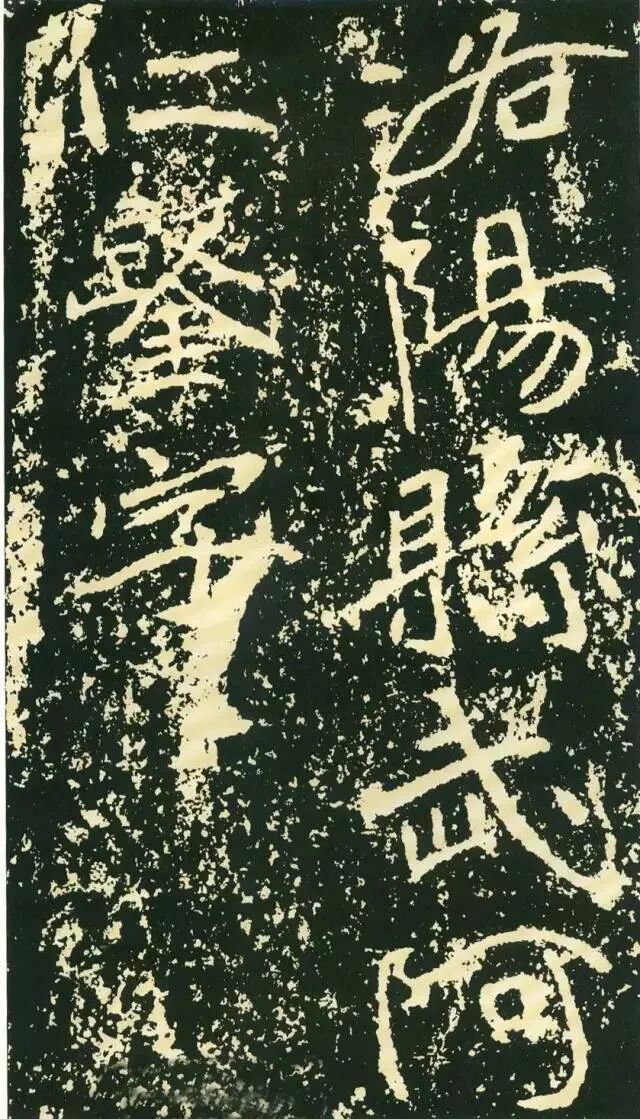 洛陽縣武阿
仁鑿字